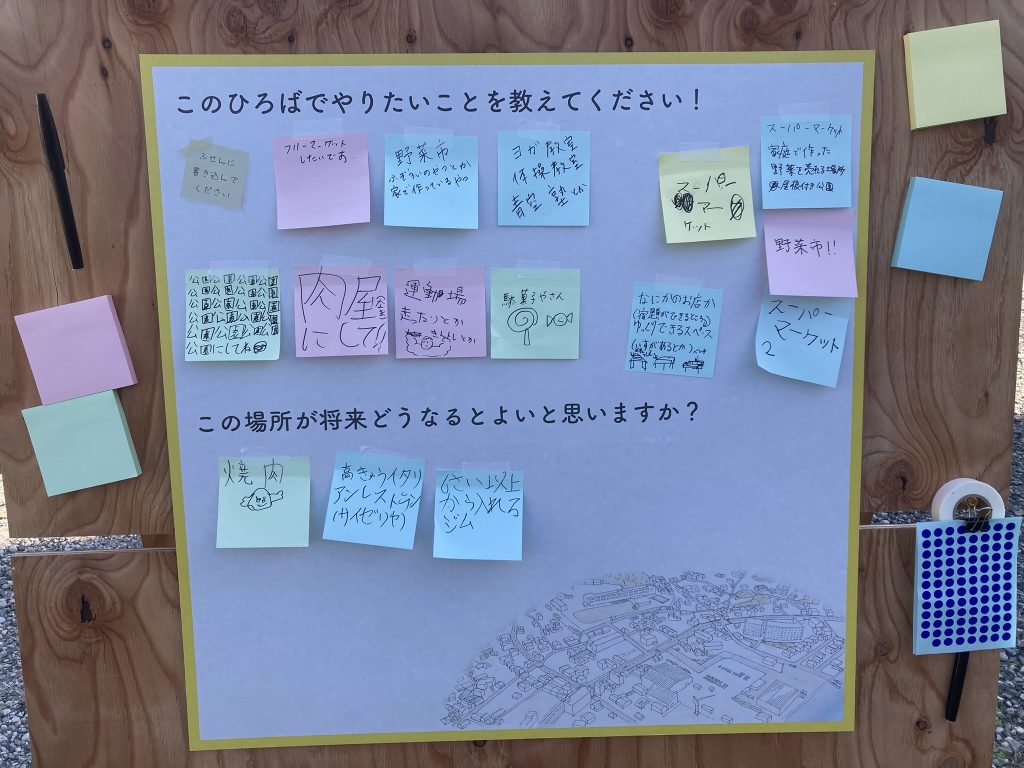 このひろばでやりたいことを教えてください！
ふせんに
書き込んで
ください
フリーマーケット
したいです。
野菜市
家で作っているやつ
ヨガ教室
体操教室
青空塾
スーパー
マー
ケット
スーパーマーケット
家庭で作った
野菜を売れる場所
屋根付き公園
野菜市!!
公園公園公園公園
公園公園公園公園
公園公園公園公園
公園公園公園公園
公園公園公園公園
公園にしてね
肉屋
にして!!
運動場
走たりとか
とか
駄菓子やさん
なにかのお店か
(宿題ができるところ)
ゆっくりできるスペース
(いすがあるとか)
ベンチ
スーパー
マーケット
2
この場所が将来どうなるとよいと思いますか？
焼肉
高きゅうイタリ
アンレストラン
(サイゼリヤ)
6さい以上
から入れる
ジム